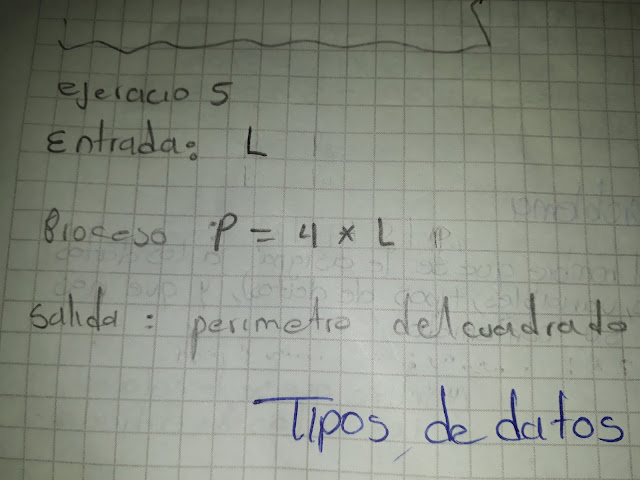 ejercicio 5
Entrada: L
Proceso P = 4 * L
Salida: perimetro del cuadrado
Tipos de datos